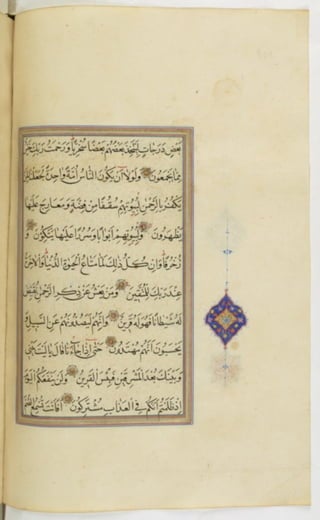 بَعْضٍ دَرَجَاتٍ لِيَتَّخِذَ بَعْضُهُمْ بَعْضًا سُخْرِيًّا وَرَحْمَتُ رَبِّكَ خَيْرٌ
مِمَّا يَجْمَعُونَ وَلَوْلَا أَنْ يَكُونَ النَّاسُ أُمَّةً وَاحِدَةً لَجَعَلْنَا لِمَنْ
يَكْفُرُ بِالرَّحْمٰنِ لِبُيُوتِهِمْ سُقُفًا مِنْ فِضَّةٍ وَمَعَارِجَ عَلَيْهَا
يَظْهَرُونَ وَلِبُيُوتِهِمْ أَبْوَابًا وَسُرُرًا عَلَيْهَا يَتَّكِئُونَ وَ
زُخْرُفًا وَإِنْ كُلُّ ذٰلِكَ لَمَّا مَتَاعُ الْحَيٰوةِ الدُّنْيَا وَالْآخِرَةُ
عِنْدَ رَبِّكَ لِلْمُتَّقِينَ وَمَنْ يَعْشُ عَنْ ذِكْرِ الرَّحْمٰنِ نُقَيِّضْ
لَهُ شَيْطَانًا فَهُوَ لَهُ قَرِينٌ وَإِنَّهُمْ لَيَصُدُّونَهُمْ عَنِ السَّبِيلِ وَ
يَحْسَبُونَ أَنَّهُمْ مُهْتَدُونَ حَتّٰى إِذَا جَاءَنَا قَالَ يَا لَيْتَ بَيْنِي
وَبَيْنَكَ بُعْدَ الْمَشْرِقَيْنِ فَبِئْسَ الْقَرِينُ وَلَنْ يَنْفَعَكُمُ الْيَوْمَ
إِذْ ظَلَمْتُمْ أَنَّكُمْ فِي الْعَذَابِ مُشْتَرِكُونَ أَفَأَنْتَ تُسْمِعُ الصُّمَّ